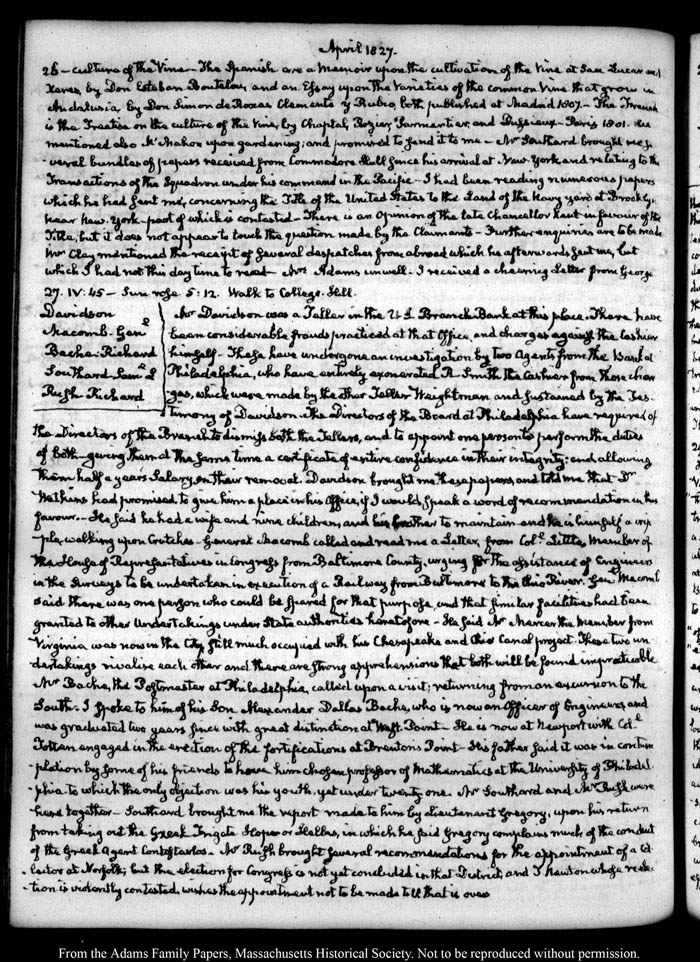 April 1827.
26 – culture of the Vine – The Spanish are a Memoir upon the cultivation of the Vine at San Lucar and
Xeres, by Don Esteban Boutelou, and an Essay upon the Varieties of the common Vine that grow in
Andalusia, by Don Simon de Roxas Clemente y Rubio, both published at Madrid 1807. – The French
is the Treatise on the culture of the Vine, by Chaptal, Rozier, Parmentier, and Dussieux – Paris 1801. He
mentioned also McMahon upon gardening; and promised to send it to me – Mr Southard brought me se-
veral bundles of papers received from Commodore Hull since his arrival at New-York and relating to the
Transactions of the Squadron under his command in the Pacific – I had been reading numerous papers
which he had sent me, concerning the Title of the United States to the Land of the Navy yard at Brooklyn
near New-York part of which is contested – There is an opinion of the late Chancellor Kent in favour of the
Title, but it does not appear to touch the question made by the Claimants – Further enquiries are to be made
Mr Clay mentioned the receipt of several despatches from abroad which he afterwards sent me, but
which I had not this day time to read – Mrs Adams unwell. I received a cheering Letter from George
27. IV:45 – Sun rose 5:12. Walk to College-Hill.
Davidson
Macomb. Genl
Bache. Richard
Southard Saml L
Rush Richard
Mr Davidson was a Teller in the U.S. Branch Bank at this place. There have
been considerable frauds practiced at that Office, and charges against the Cashier
himself – These have undergone an investigation by two Agents from the Bank at
Philadelphia, who have entirely exonerated R. Smith the Cashier from those char-
ges, which were made by the other Teller Weightman and sustained by the Tes-
timony of Davidson. The Directors of the Board at Philadelphia have required of
the Directors of the Branch to dismiss both the Tellers, and to appoint one person to perform the duties
of both – giving them at the same time a certificate of entire confidence in their integrity: and allowing
them half a years Salary, on their removal. Davidson brought me these papers, and told me that Dr
Watkins had promised to give him a place in his Office, if I would speak a word of recommendation in his
favour. – He said he had a wife and nine children, and his brother to maintain and he is himself a crip-
ple, walking upon Crutches – General Macomb called and read me a Letter, from Coll Little, Member of
the House of Representatives in Congress from Baltimore County, urging for the assistance of Engineers
in the Surveys to be undertaken in execution of a Railway from Baltimore to the Ohio River. Genl Macomb
said there was one person who could be spared for that purpose, and that similar facilities had been
granted to other Undertakings under State authorities heretofore – He said Mr Mercer the Member from
Virginia was now in the City still much occupied with his Chesapeake and Ohio Canal project. These two un-
dertakings rivalise each other and there are strong apprehensions that both will be found impracticable
Mr Bache, the Postmaster at Philadelphia, called upon a visit; returning from an excursion to the
South. I spoke to him of his Son Alexander Dallas Bache, who is now an Officer of Engineers, and
was graduated two years since with great distinction at West-Point – He is now at Newport with Coll
Totten engaged in the erection of the fortifications at Brenton's Point – His father said it was in contem-
plation by some of his friends to have him chosen professor of Mathematics at the University of Philadel-
phia to which the only objection was his youth, yet under twenty one. Mr Southard and Mr Rush were
here together – Southard brought me the report made to him by Lieutenant Gregory, upon his return
from taking out the Greek frigate Hope or Hellas, in which he said Gregory complains much of the conduct
of the Greek Agent Contostavlos. Mr Rush brought several recommendations for the appointment of a Col-
lector at Norfolk; but the election for Congress is not yet concluded in that District, and T. Newton whose reelec-
tion is violently contested, wishes the appointment not to be made till that is over
From the Adams Family Papers, Massachusetts Historical Society. Not to be reproduced without permission.